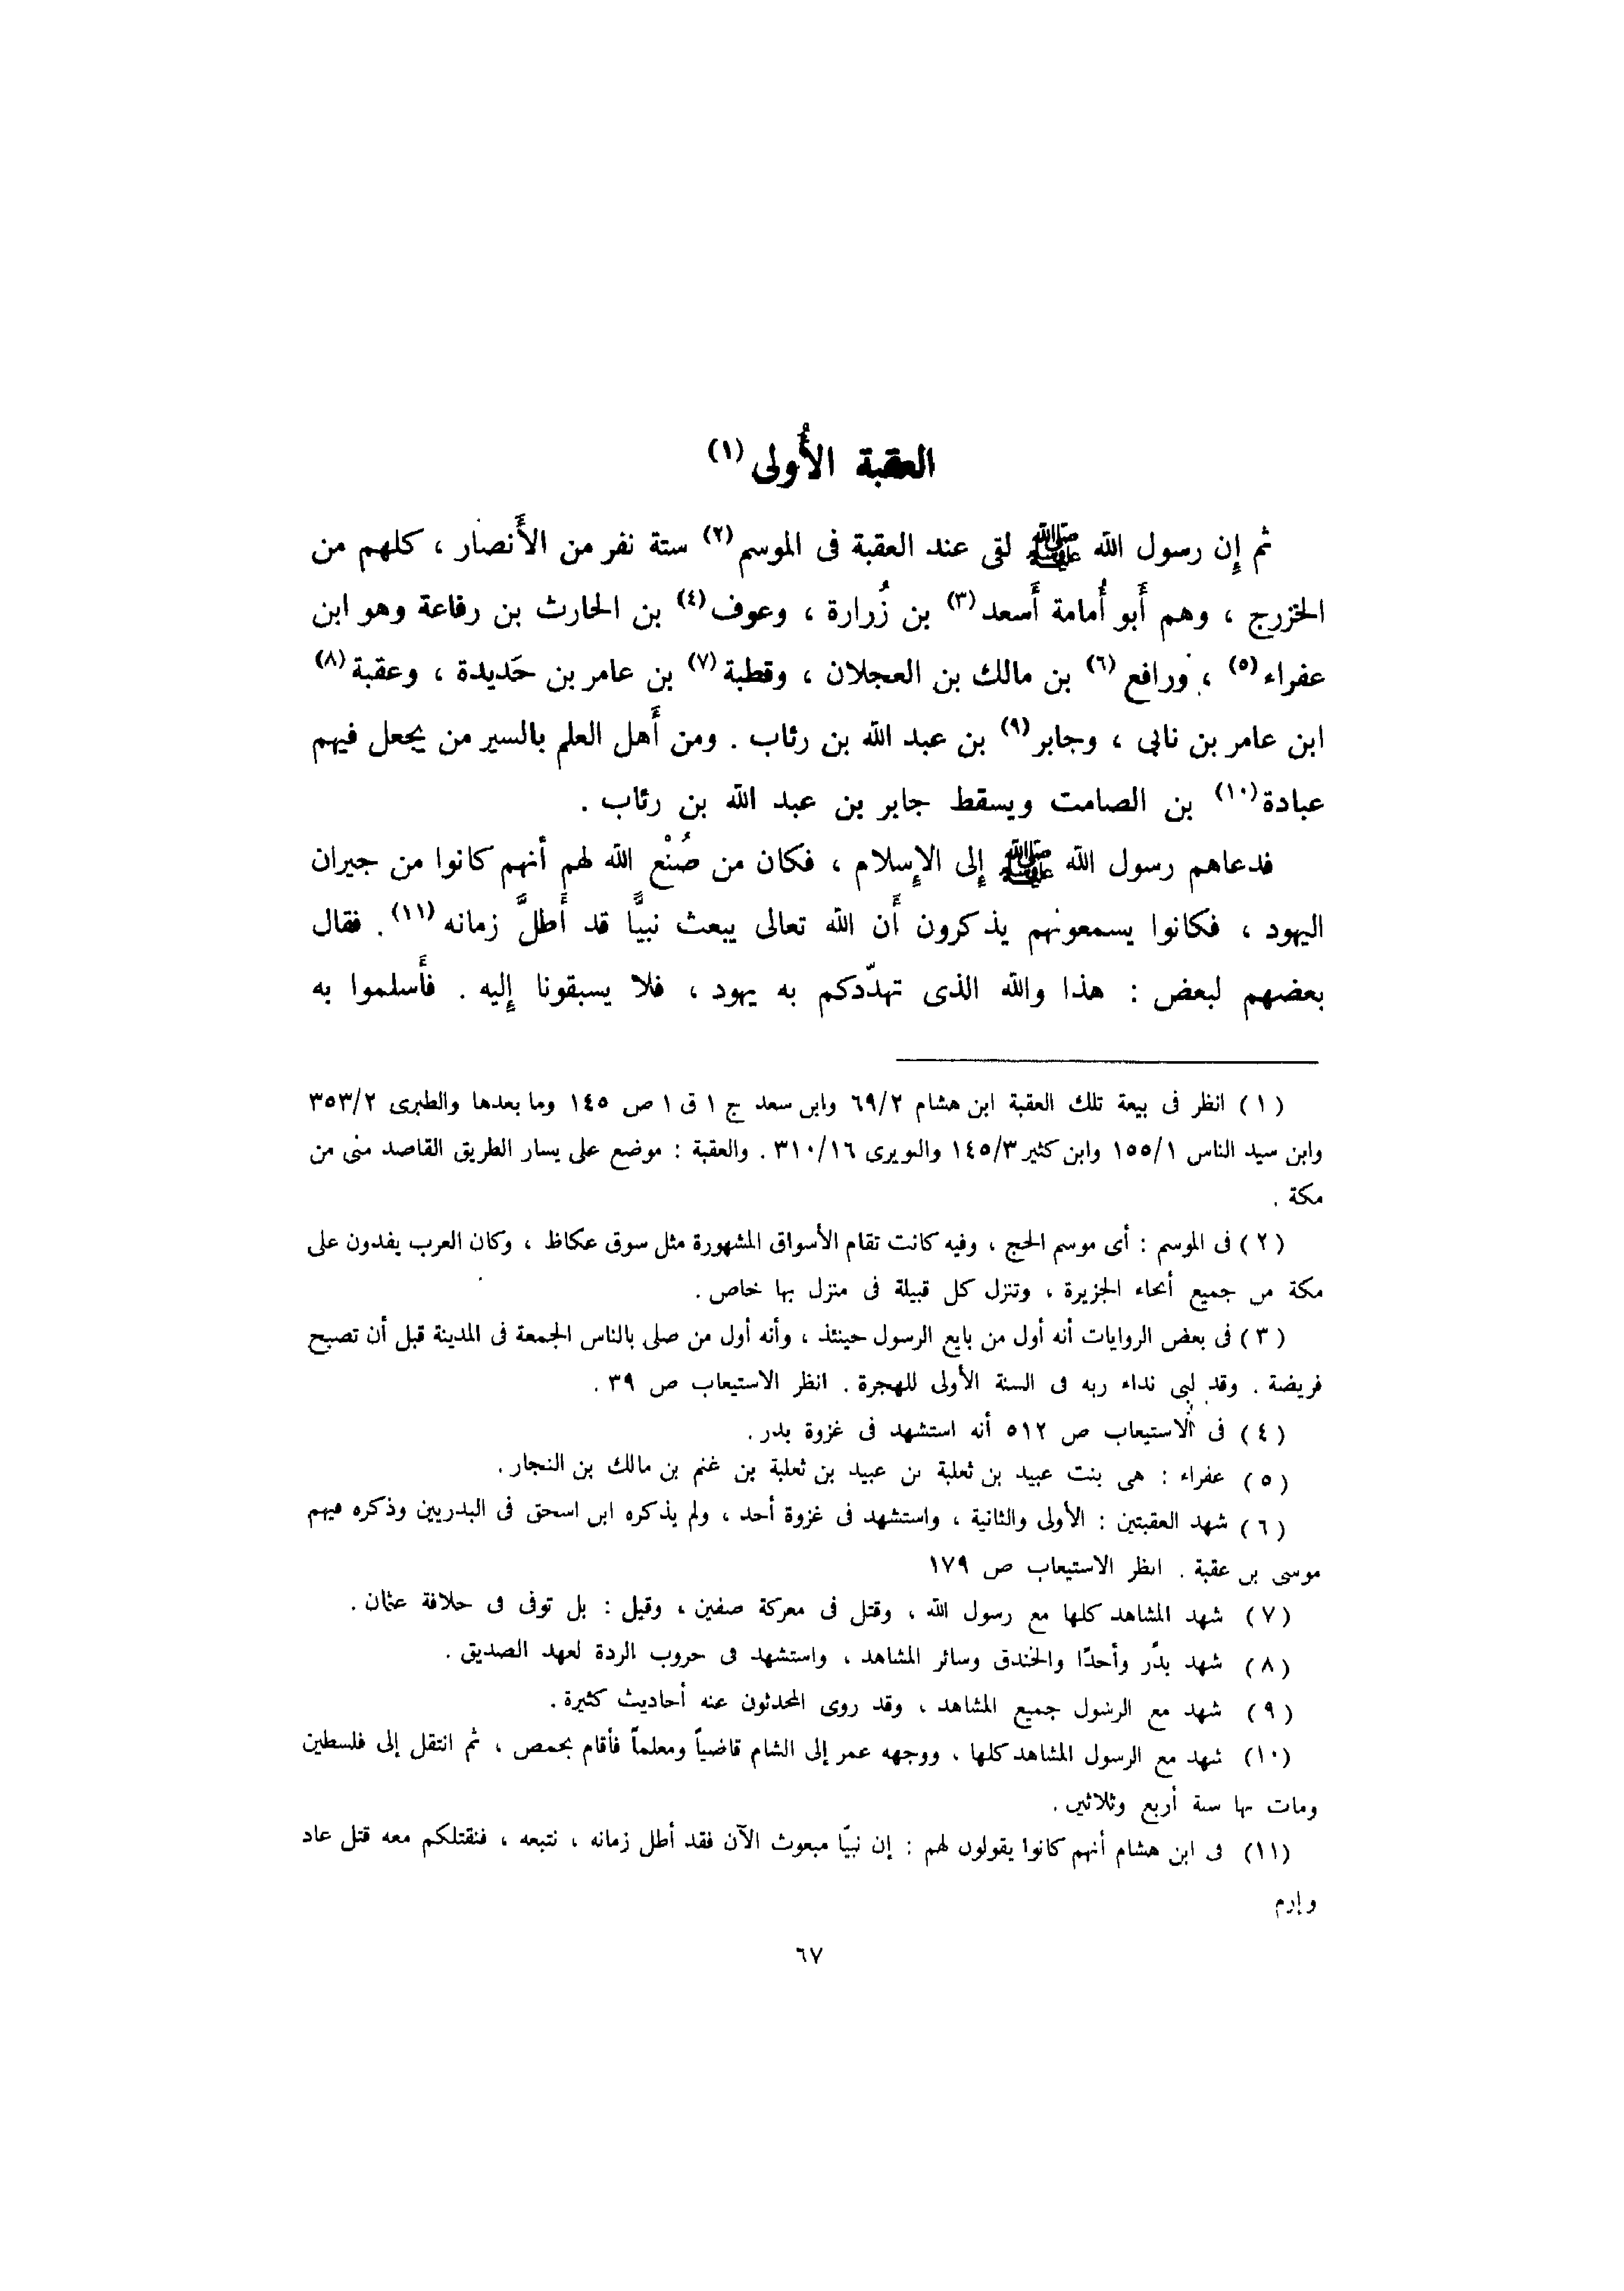 العقبة الأُولى (١)
ثم إِن رسول الله ﷺ لقى عند العقبة فى الموسم (٢) ستة نفر من الأَنصار ، كلهم من
الخزرج ، وهم أَبو أُمامة أَسعد (٣) بن زُرارة ، وعوف (٤) بن الحارث بن رفاعة وهو ابن
عفراء (٥) ، ورافع (٦) بن مالك بن العجلان ، وقطبة (٧) بن عامر بن حَديدة ، وعقبة (٨)
ابن عامر بن نابى ، وجابر (٩) بن عبد الله بن رئاب . ومن أَهل العلم بالسير من يجعل فيهم
عبادة (١٠) بن الصامت ويسقط جابر بن عبد الله بن رئاب .
فدعاهم رسول الله ﷺ إِلى الإِسلام ، فكان من صُنْع الله لهم أنهم كانوا من جيران
اليهود ، فكانوا يسمعونهم يذكرون أَن الله تعالى يبعث نبيًّا قد أَطلَّ زمانه (١١) . فقال
بعضهم لبعض : هذا والله الذى تهدّدكم به يهود ، فلا يسبقونا إِليه . فأَسلموا به
(١) انظر فى بيعة تلك العقبة ابن هشام ٦٩/٢ وابن سعد ج ١ ق ١ ص ١٤٥ وما بعدها والطبرى ٣٥٣/٢
وابن سيد الناس ١٥٥/١ وابن كثير ١٤٥/٣ والنويرى ٣١٠/١٦ . والعقبة : موضع على يسار الطريق القاصد منى من
مكة .
(٢) فى الموسم : أى موسم الحج ، وفيه كانت تقام الأسواق المشهورة مثل سوق عكاظ ، وكان العرب يفدون على
مكة من جميع أنحاء الجزيرة ، وتنزل كل قبيلة فى منزل بها خاص .
(٣) فى بعض الروايات أنه أول من بايع الرسول حينئذ ، وأنه أول من صلى بالناس الجمعة فى المدينة قبل أن تصبح
فريضة . وقد لبى نداء ربه فى السنة الأولى للهجرة . انظر الاستيعاب ص ٣٩ .
(٤) فى الاستيعاب ص ٥١٢ أنه استشهد فى غزوة بدر .
(٥) عفراء : هى بنت عبيد بن ثعلبة بن عبيد بن ثعلبة بن غنم بن مالك بن النجار .
(٦) شهد العقبتين : الأولى والثانية ، واستشهد فى غزوة أحد ، ولم يذكره ابن اسحق فى البدريين وذكره فيهم
موسى بن عقبة . انظر الاستيعاب ص ١٧٩
(٧) شهد المشاهد كلها مع رسول الله ، وقتل فى معركة صفين ، وقيل : بل توفى فى خلافة عثمان .
(٨) شهد بدًر وأحدًا والخندق وسائر المشاهد ، واستشهد فى حروب الردة لعهد الصديق .
(٩) شهد مع الرسول جميع المشاهد ، وقد روى المحدثون عنه أحاديث كثيرة .
(١٠) شهد مع الرسول المشاهد كلها ، ووجهه عمر إلى الشام قاضياً ومعلماً فأقام بحمص ، ثم انتقل إلى فلسطين
ومات بها سنة أربع وثلاثين .
(١١) فى ابن هشام أنهم كانوا يقولون لهم : إن نبيًا مبعوث الآن فقد أطل زمانه ، نتبعه ، فنقتلكم معه قتل عاد
وإرم
٦٧